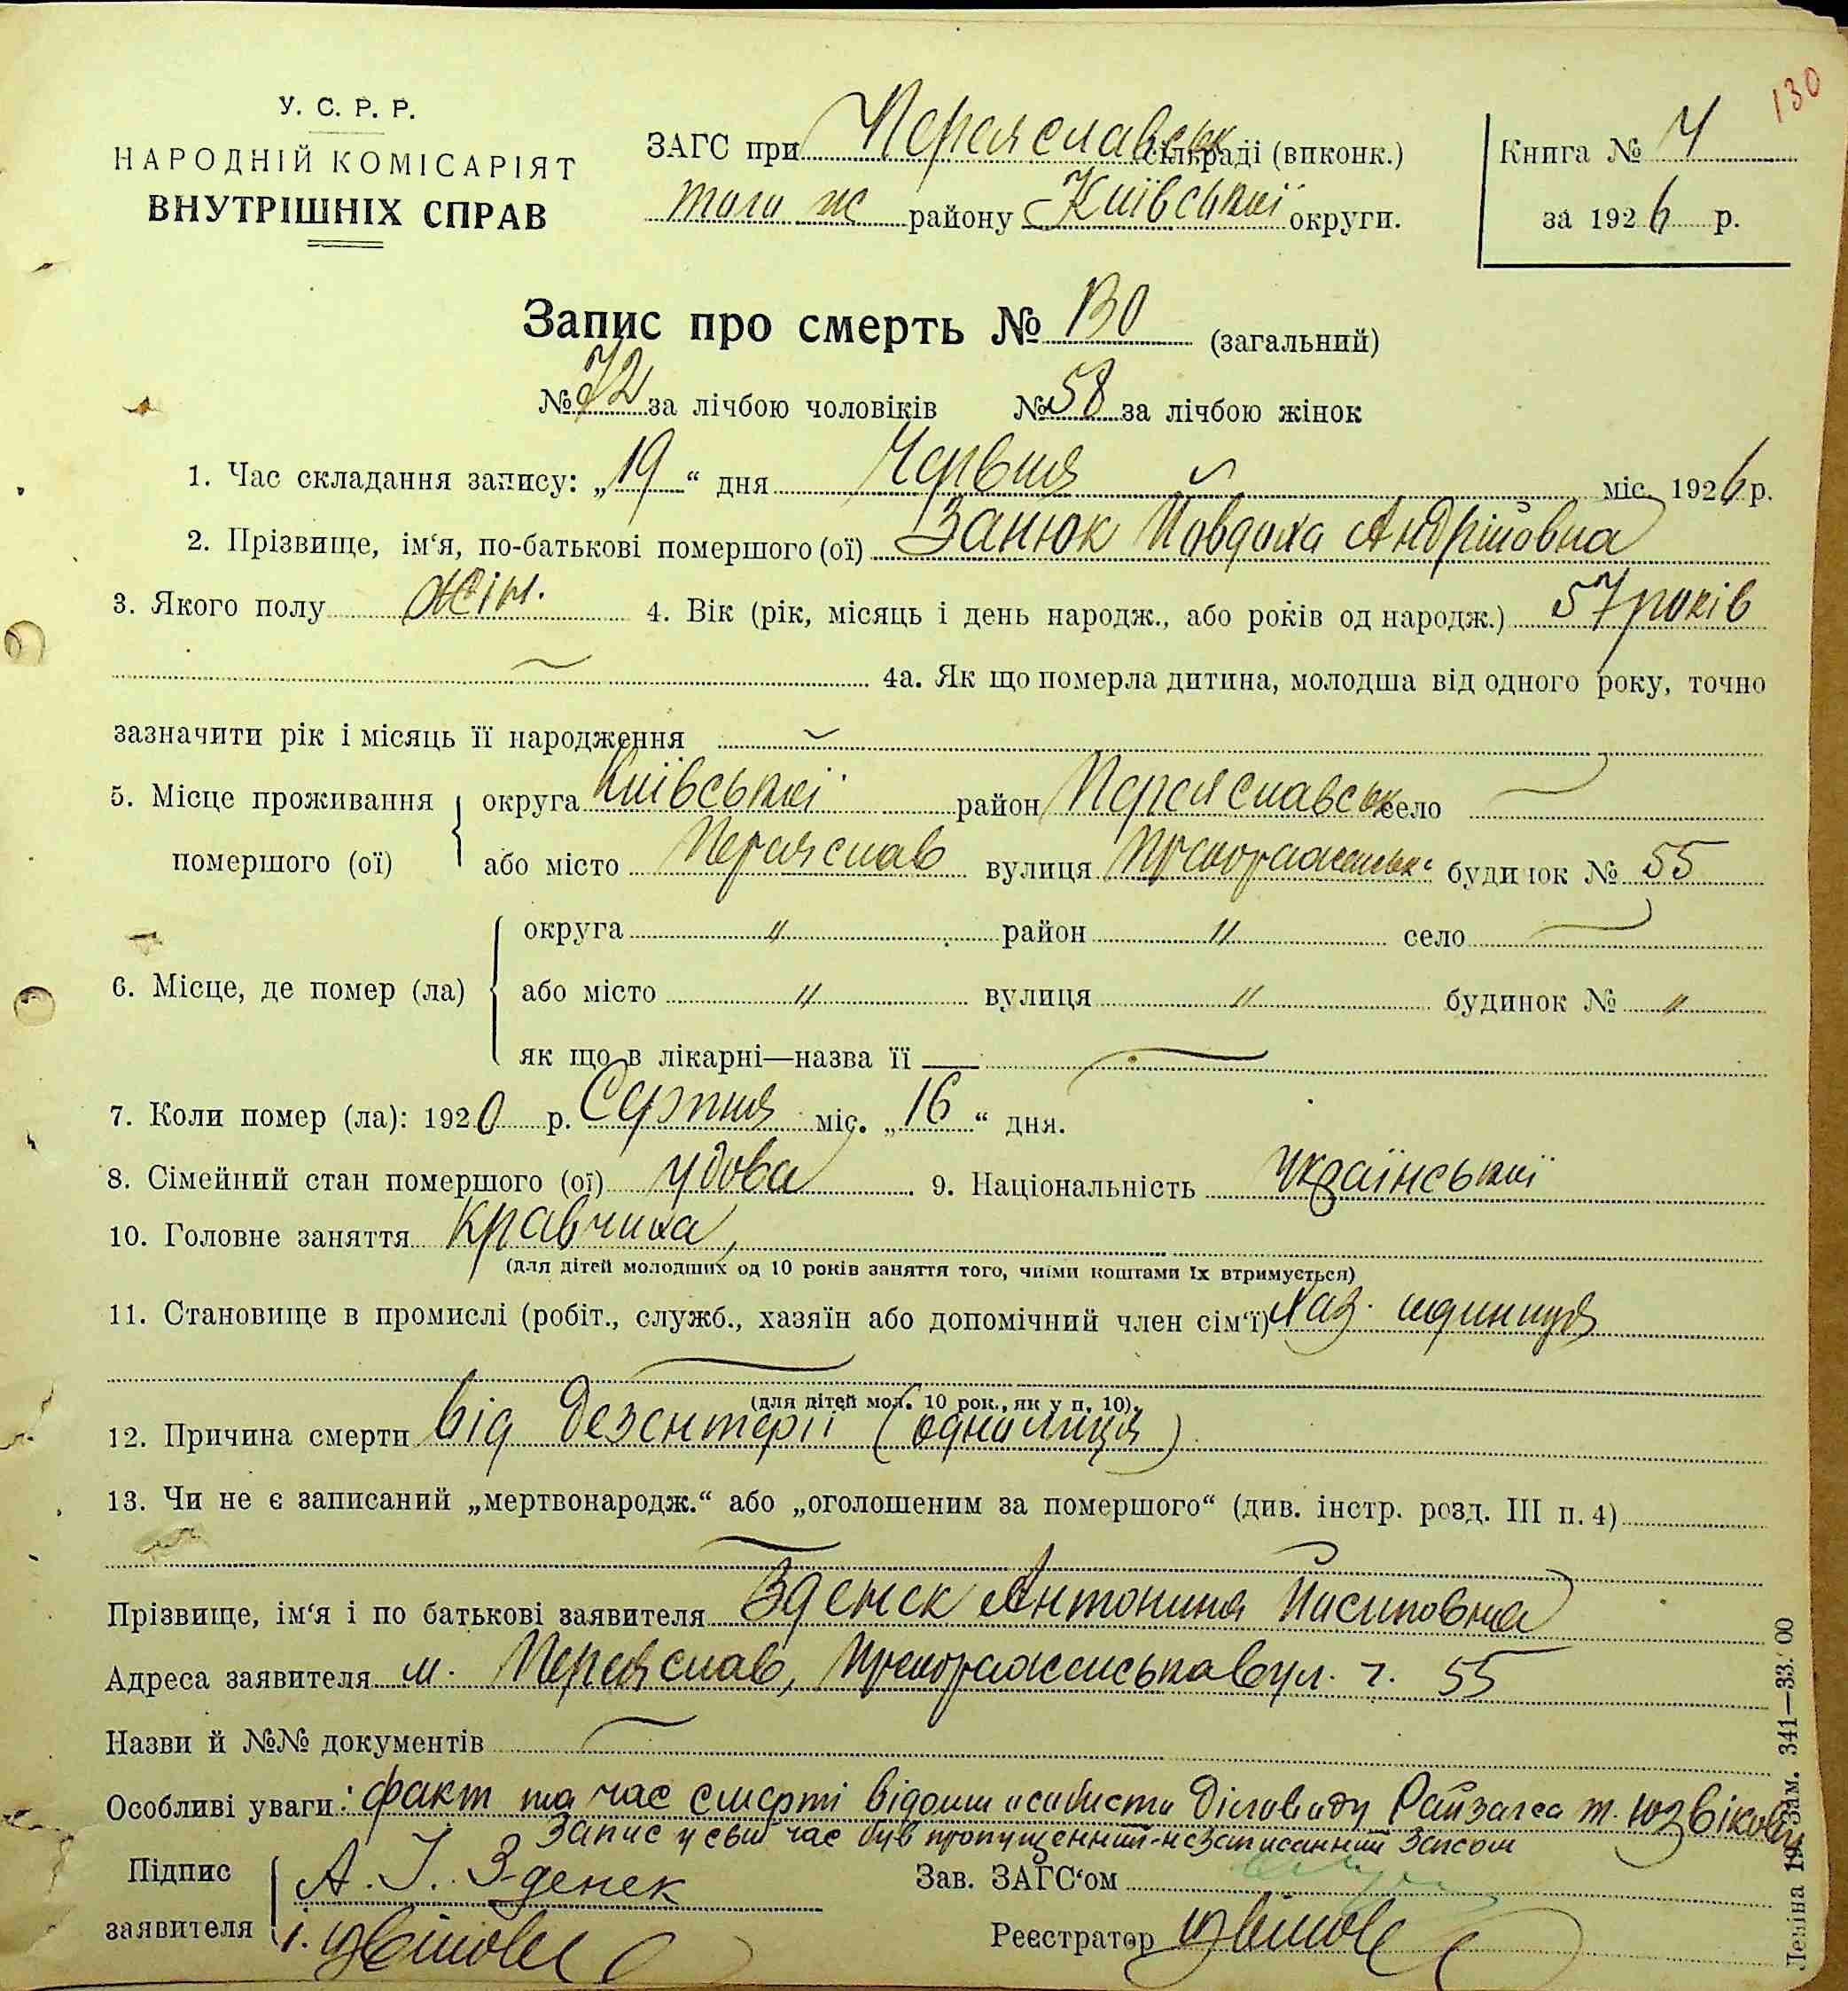 130
У. С. Р. Р.
НАРОДНІЙ КОМІСАРІЯТ
ВНУТРІШНІХ СПРАВ
ЗАГС при Переяславськ сільраді (виконк.)
того ж району Київської округи.
Книга №
за 1926 р.
Запис про смерть № 130 (загальний)
№ 72 за лічбою чоловіків № 58 за лічбою жінок
1. Час складання запису: „19“ дня Червня міс. 1926 р.
2. Прізвище, ім‘я, по-батькові помершого (ої) Занюк Йовдоха Андрійовна
3. Якого полу жін. 4. Вік (рік, місяць і день народж., або років од народж.) 57 років
4а. Як що померла дитина, молодша від одного року, точно
зазначити рік і місяць її народження
5. Місце проживання помершого (ої) округа Київської район Переяславськ село
або місто Переяслав вулиця будинок № 55
6. Місце, де помер (ла) округа " район " село
або місто " вулиця " будинок № "
як що в лікарні—назва її
7. Коли помер (ла): 1920 р. Серпня міс. „16“ дня.
8. Сімейний стан помершого (ої) удова 9. Національність української
10. Головне заняття Кравчиха,
(для дітей молодших од 10 років заняття того, чиїми коштами їх втримується)
11. Становище в промислі (робіт., служб., хазяїн або допомічний член сім‘ї) Хаз. одиниця
(для дітей мол. 10 рок., як у п. 10).
12. Причина смерти від дезентерії (одналиця)
13. Чи не є записаний „мертвонародж.“ або „оголошеним за помершого“ (див. інстр. розд. III п. 4)
Прізвище, ім‘я і по батькові заявителя Зденек Антонина Йосиповна
Адреса заявителя м. Переяслав, вул. ч. 55
Назви й №№ документів
Особливі уваги: факт та час смерті відоми особисто Діловоду Райзагса т.
Запис у свій час був пропущенний-незаписанний Загсом
Підпис заявителя А. І. Зденек
Зав. ЗАГС‘ом
Реєстратор